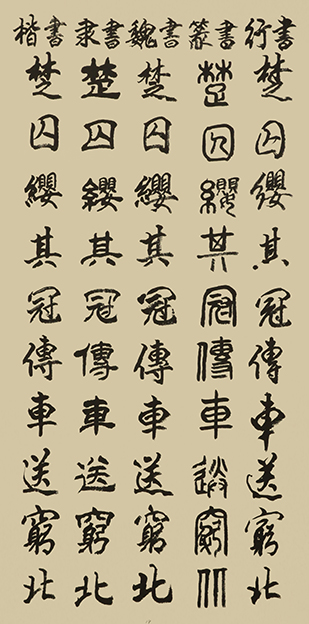 楷書 隶書 魏書 篆書 行書
楚囚纓其冠傳車送窮北
楚囚纓其冠傳車送窮北
楚囚纓其冠傳車送窮北
楚囚纓其冠傳車送窮北
楚囚纓其冠傳車送窮北